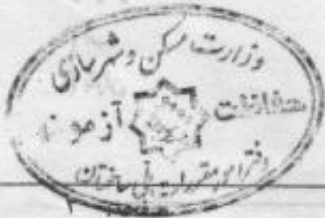 وزارت مسکن و شهرسازی
آزمون
دفتر امور مقررات ملی ساختمان